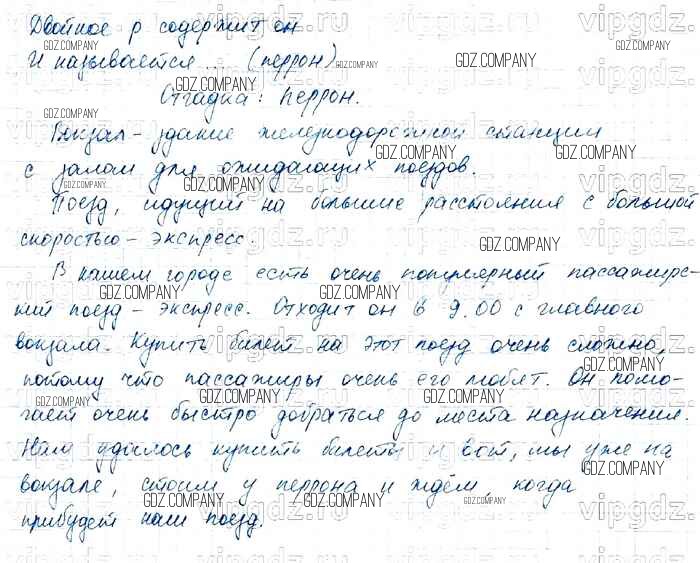 Двойное р содержит он
И называется ... (перрон)
Отгадка: Перрон.
Вокзал - здание железнодорожной станции
с залом для ожидающих поездов.
Поезд, идущий на большие расстояния с большой
скоростью - экспресс.
В нашем городе есть очень популярный пассажирс-
кий поезд - экспресс. Отходит он в 9.00 с главного
вокзала. Купить билет на этот поезд очень сложно,
потому что пассажиры очень его любят. Он помо-
гает очень быстро добраться до места назначения.
Нам удалось купить билеты и вот, мы уже на
вокзале, стоим у перрона и ждём, когда
прибудет наш поезд.
vipgdz.ru
GDZ.COMPANY